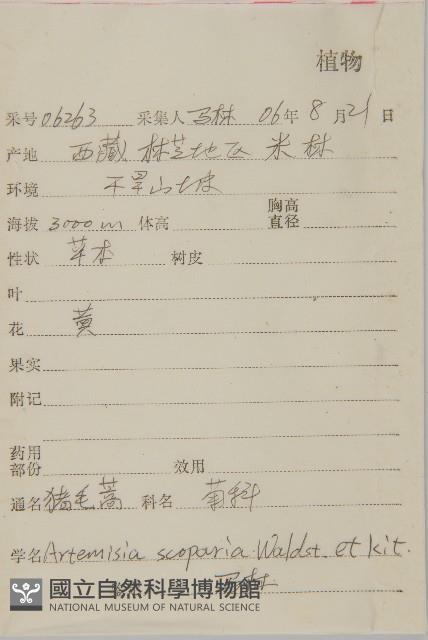 植物
采号 06263 采集人 马林 06年 8 月 21 日
产地 西藏 林芝地区 米林
环境 干旱山坡
海拔 3000m 体高 胸高直径
性状 草本 树皮
叶
花 黄
果实
附记
药用部份 效用
通名 猪毛蒿 科名 菊科
学名 Artemisia scoparia Waldst. et kit.
國立自然科學博物館
NATIONAL MUSEUM OF NATURAL SCIENCE